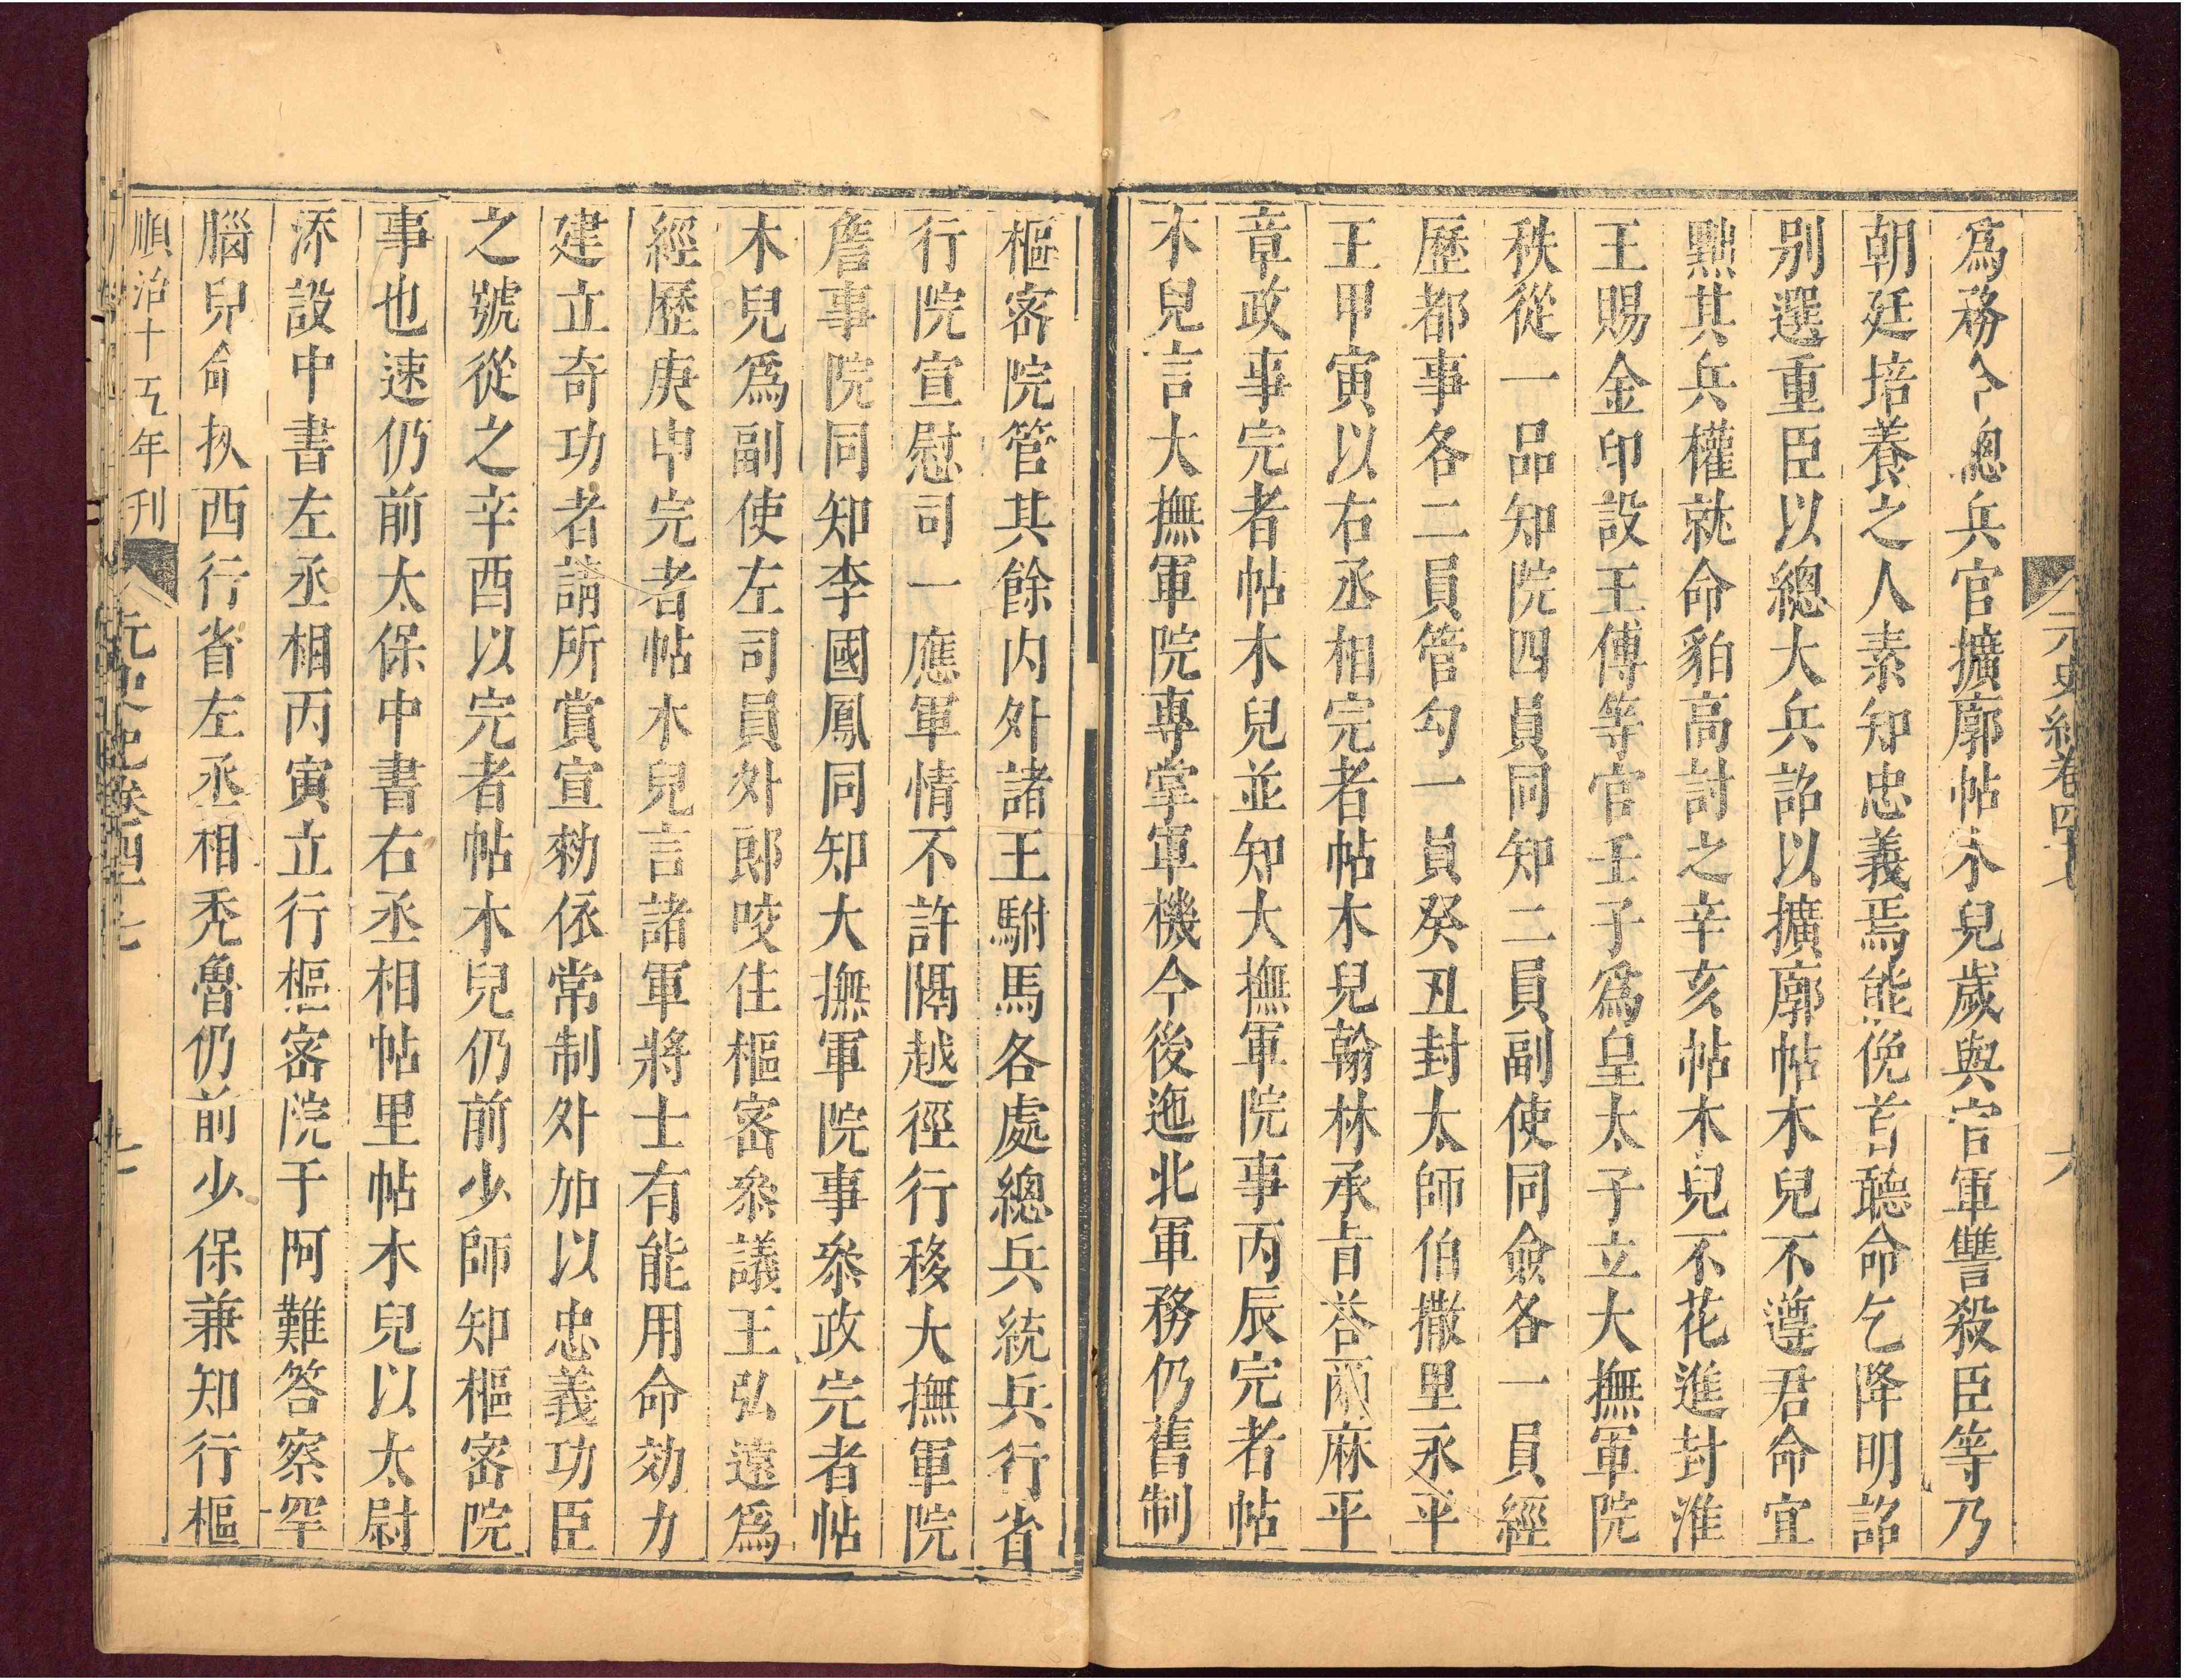 爲務今總兵官擴廓帖木兒歲與官軍讐殺臣等乃
朝廷培養之人素知忠義焉能俛首聽命乞降明詔
別選重臣以總大兵詔以擴廓帖木兒不遵君命宜
黜其兵權就命貊高討之辛亥帖木兒不花進封淮
王賜金印設王傅等官壬子爲皇太子立大撫軍院
秩從一品知院四員同知二員副使同僉各一員經
歷都事各二員管勾一員癸丑封太師伯撒里永平
王甲寅以右丞相完者帖木兒翰林承旨荅爾麻平
章政事完者帖木兒並知大撫軍院事丙辰完者帖
木兒言大撫軍院專掌軍機今後迤北軍務仍舊制
樞密院管其餘內外諸王駙馬各處總兵統兵行省
行院宣慰司一應軍情不許隔越徑行移大撫軍院
詹事院同知李國鳳同知大撫軍院事叅政完者帖
木兒爲副使左司員外郎咬住樞密叅議王弘遠爲
經歷庚申完者帖木兒言諸軍將士有能用命効力
建立奇功者請所賞宣勑依常制外加以忠義功臣
之號從之辛酉以完者帖木兒仍前少師知樞密院
事也速仍前太保中書右丞相帖里帖木兒以太尉
添設中書左丞相丙寅立行樞密院于阿難答察罕
腦兒命㧞西行省左丞相禿魯仍前少保兼知行樞
順治十五年刊 元史紀卷四十七 七